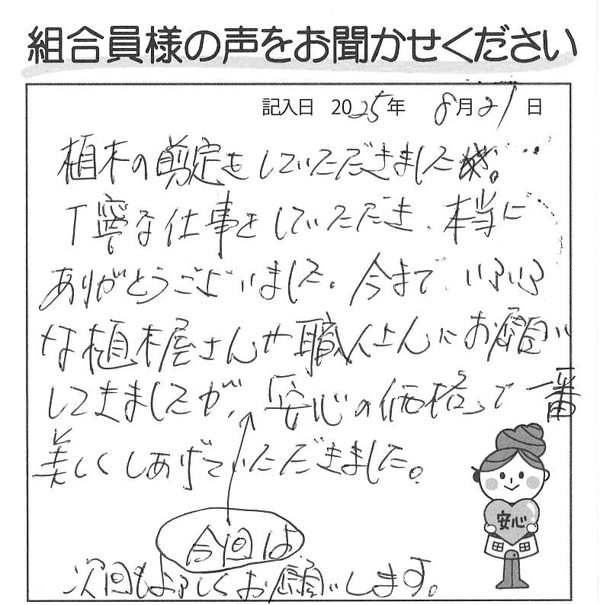 組合員様の声をお聞かせください
記入日 2025年 8月21日
植木の剪定をしていただきました。
丁寧な仕事をしていただき、本当に
ありがとうございました。今まで いろいろ
な植木屋さんや職人さんにお願い
してきましたが、今回は「安心の価格」で一番
美しくしあげていただきました。
次回もよろしくお願いします。
安心